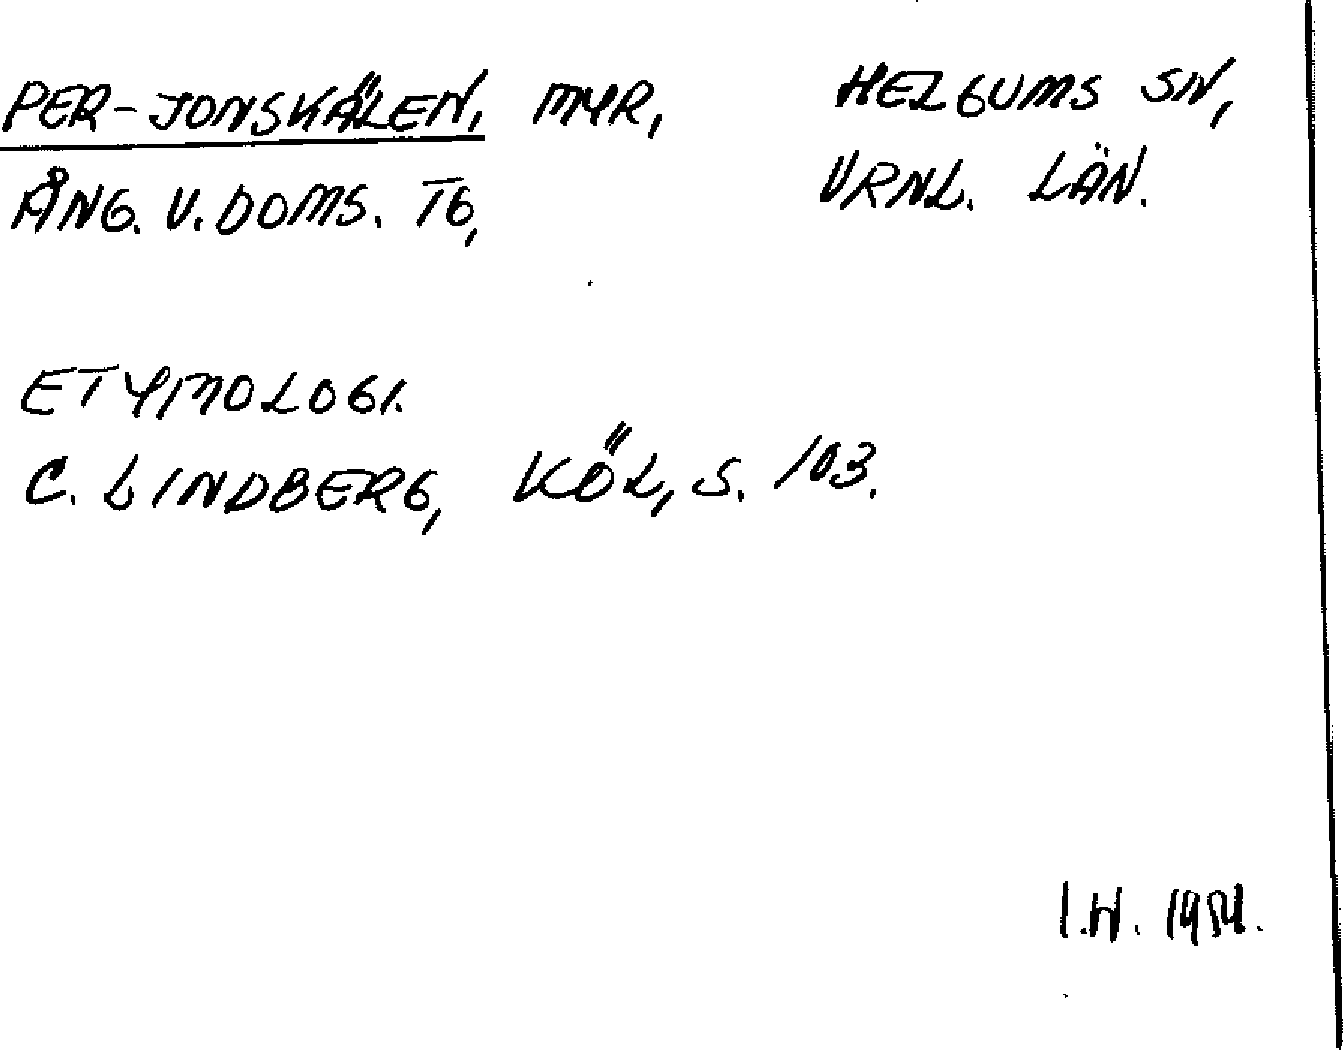 PER-JONSKÄLEN, MYR, HELGUMS SN,
ÅNG. V. DOMS. TG, VRNL. LÄN.
ETYMOLOGI.
C. LINDBERG, KÖL, S. 103.
I.H.